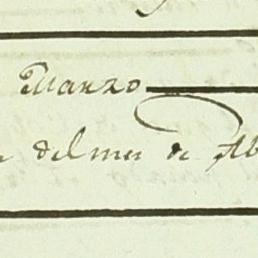 Marzo
del mes de Ab